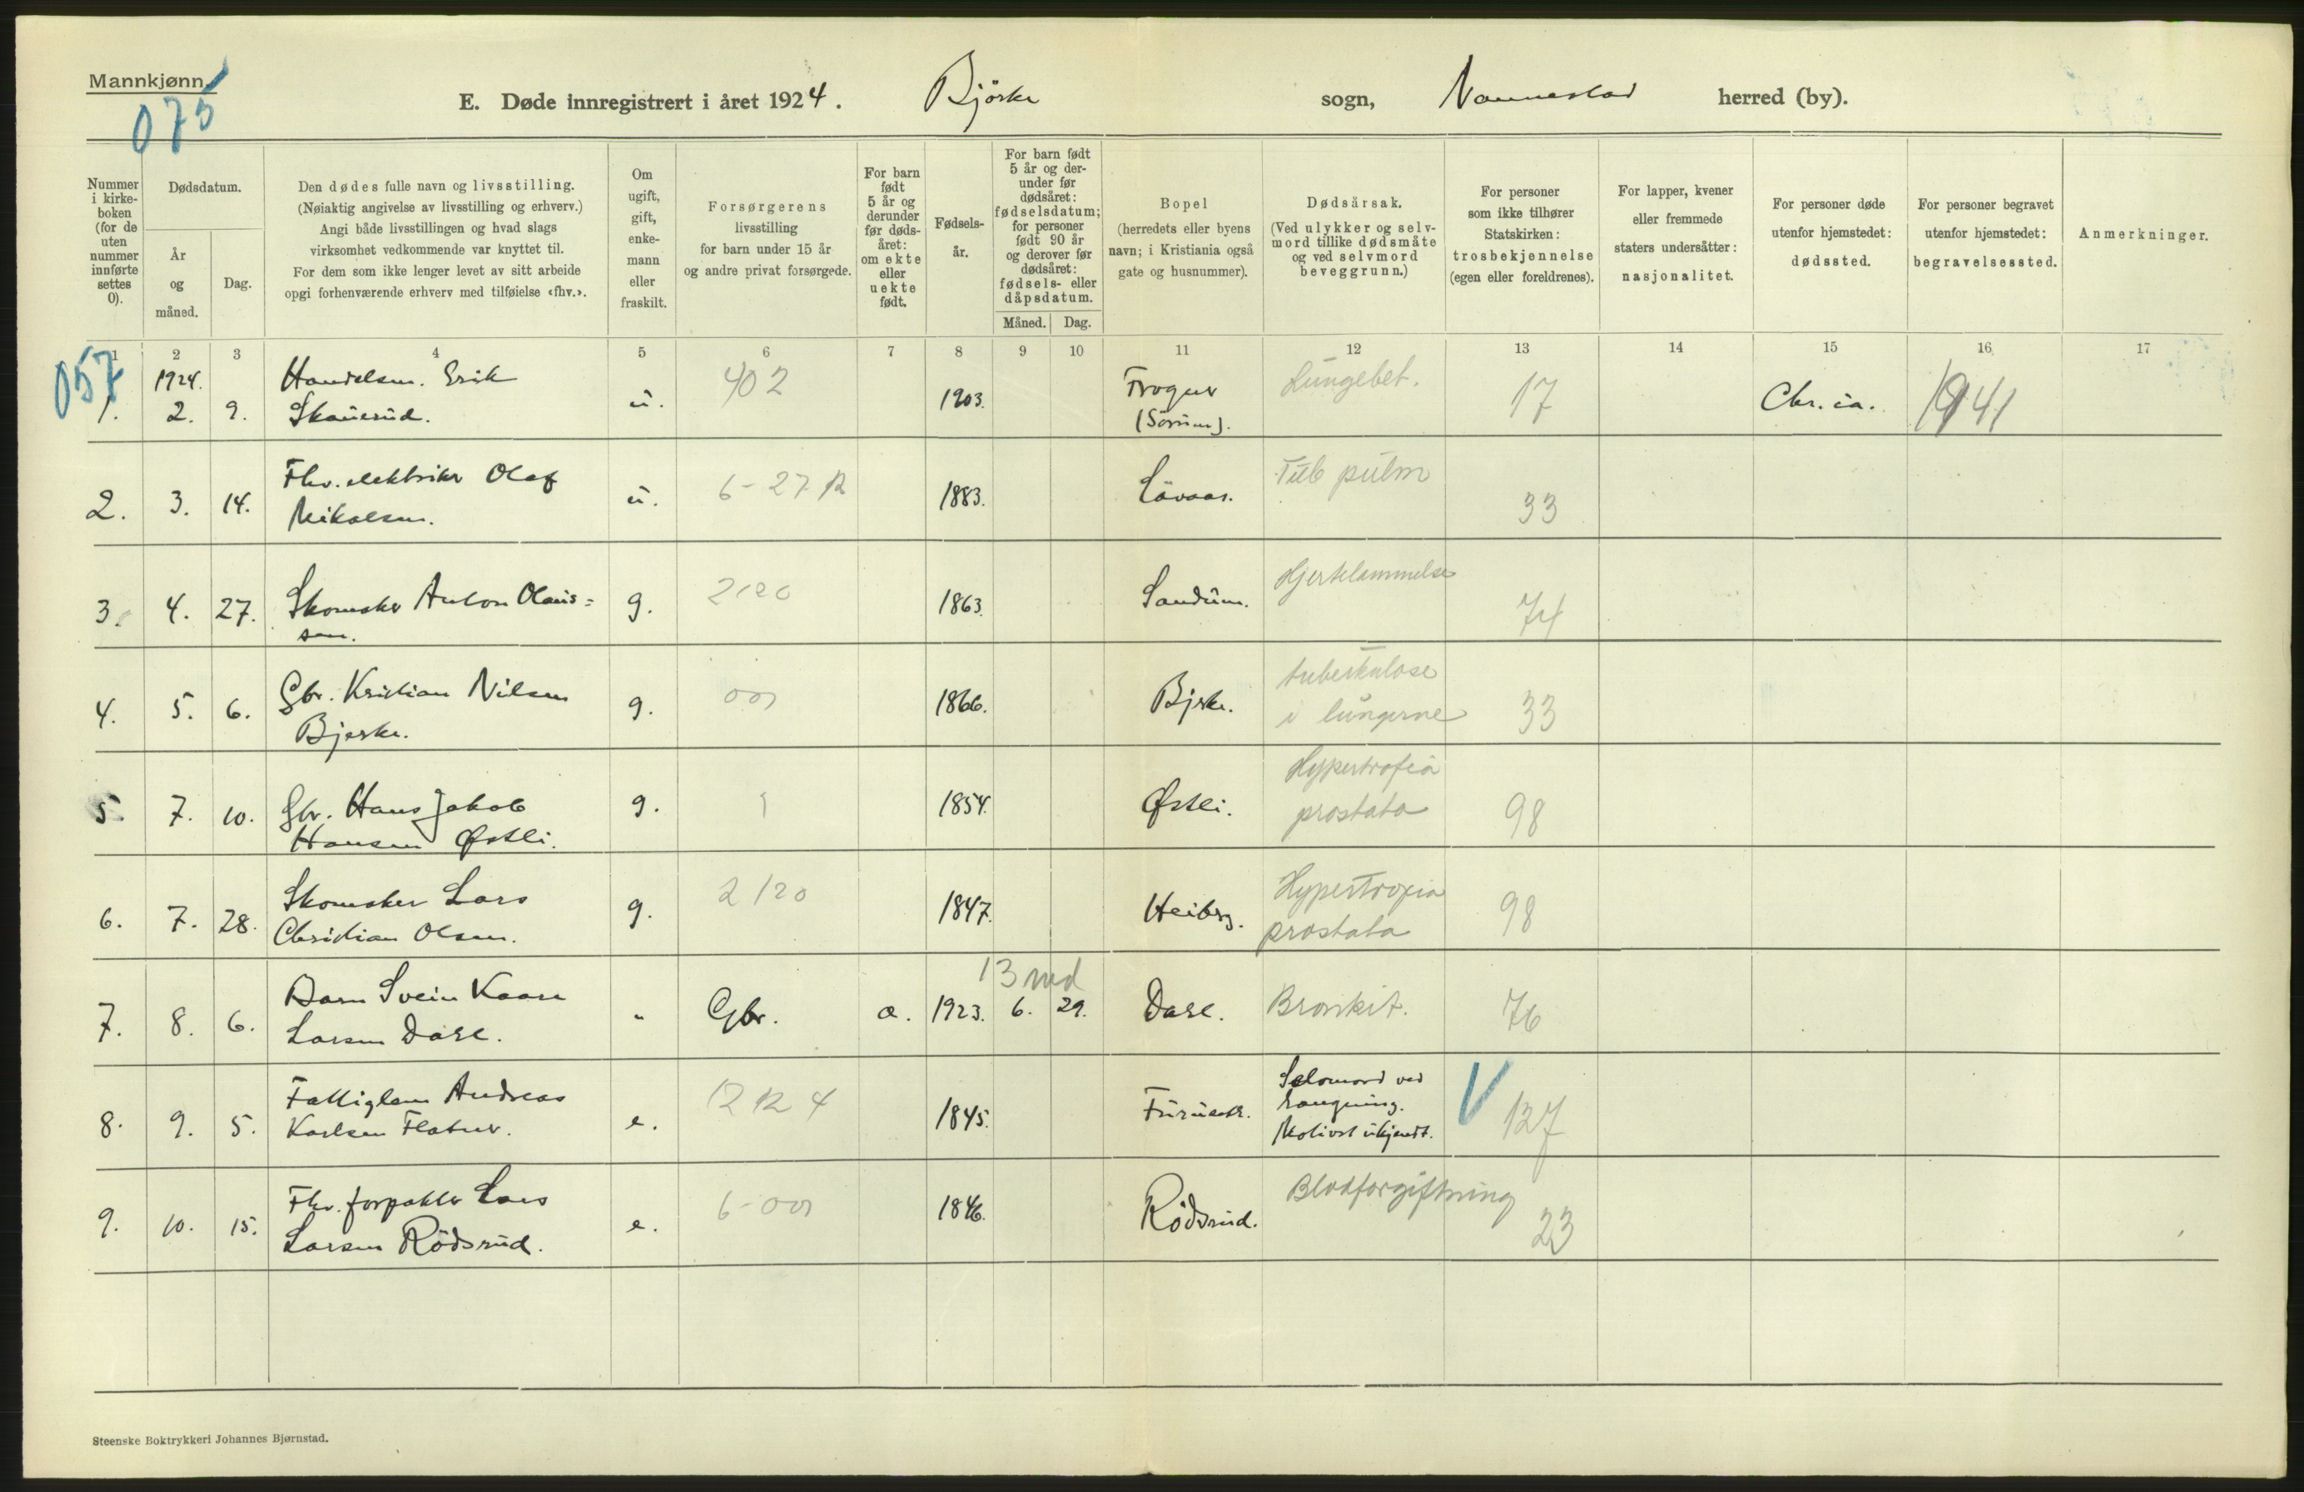 Mannkjønn.
075
E. Døde innregistrert i året 1924. Björke sogn, Nannestad herred (by).
Nummer i kirke-boken (for de uten nummer innførte settes 0).
Dødsdatum.
År og måned.
Dag.
Den dødes fulle navn og livsstilling.
(Nøiaktig angivelse av livsstilling og erhverv.)
Angi både livsstillingen og hvad slags
virksomhet vedkommende var knyttet til.
For dem som ikke lenger levet av sitt arbeide
opgi forhenværende erhverv med tilføielse «fhv.».
Om ugift, gift, enke-mann eller fraskilt.
Forsørgerens
livsstilling
for barn under 15 år
og andre privat forsørgede.
For barn født 5 år og derunder før døds-året: om ekte eller uekte født.
Fødsels-år.
For barn født 5 år og der-under før dødsåret: fødselsdatum; for personer født 90 år og derover før dødsåret: fødsels- eller dåpsdatum.
Måned. Dag.
Bopel
(herredets eller byens
navn; i Kristiania også
gate og husnummer).
Dødsårsak.
(Ved ulykker og selv-
mord tillike dødsmåte
og ved selvmord
beveggrunn.)
For personer
som ikke tilhører
Statskirken:
trosbekjennelse
(egen eller foreldrenes).
For lapper, kvener
eller fremmede
staters undersåtter:
nasjonalitet.
For personer døde
utenfor hjemstedet:
dødssted.
For personer begravet
utenfor hjemstedet:
begravelsessted.
Anmerkninger.
1 2 3 4 5 6 7 8 9 10 11 12 13 14 15 16 17
057
1924. Handelsm. Erik 402 Frogner Lungebet.
1. 2. 9. Skauerud. u. 1903. (Sörum). 17 Chr.ia. 1941
Fhv. elektriker Olaf 6-27 Tub pulm
2. 3. 14. Nikolsen. u. 1883. Lövaas. 33
Hjertelammelse
3. 4. 27. Skomaker Anton Olaus= g. 2120 1863. Sandum. 74
sen.
Gbr. Kristian Nilsen tuberkulose
4. 5. 6. Bjerke. g. 001 1866. Bjerke. i lungerne 33
Hypertrofia
5. 7. 10. Gbr. Hans Jakob g. 1 1854. Østli. prostata 98
Hansen Østli.
Skomaker Lars 2120 Hypertrofia
6. 7. 28. Christian Olsen. g. 1847. Heiberg. prostata 98
13 md
Barn Svein Kaare
7. 8. 6. Larsen Dasl. " Gbr. e. 1923. 6. 29. Dasl. Bronkit. 76
Fattiglem Andreas 12 R 4 Selvmord ved V
8. 9. 5. Karlsen Flatner. e. 1845. hængning. 127
Motivet ukjendt.
Fhv. forpakter Lars 6-001 Blodforgiftning
9. 10. 15. Larsen Rödsrud. e. 1846. Rödsrud. 23
Steenske Boktrykkeri Johannes Bjørnstad.